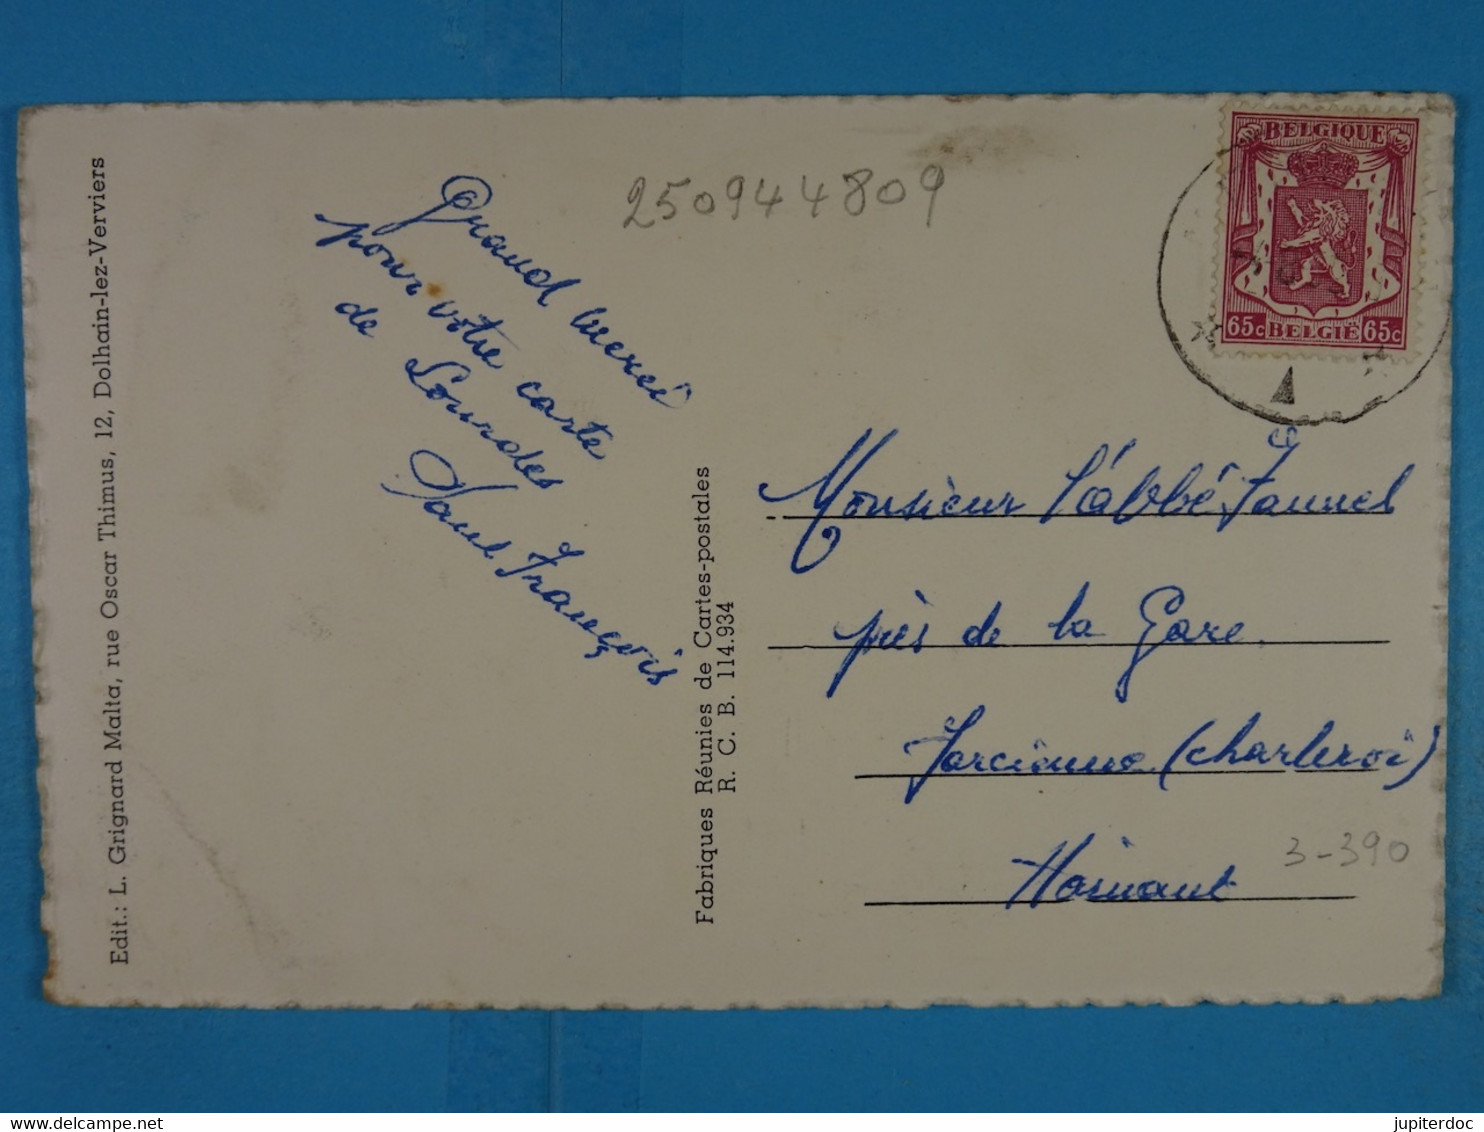 Edit.: L. Grignard Malta, rue Oscar Thimus, 12, Dolhain-lez-Verviers
250944809
Grand Merci
pour votre carte
de Lourdes
Paul François
Fabriques Réunies de Cartes-postales
R. C. B. 114.934
BELGIQUE
65c BELGIE 65c
Monsieur l'abbé Jaunet
près de la Gare
Farcienne (Charleroi)
Hainaut
3-390
jupiterdoc